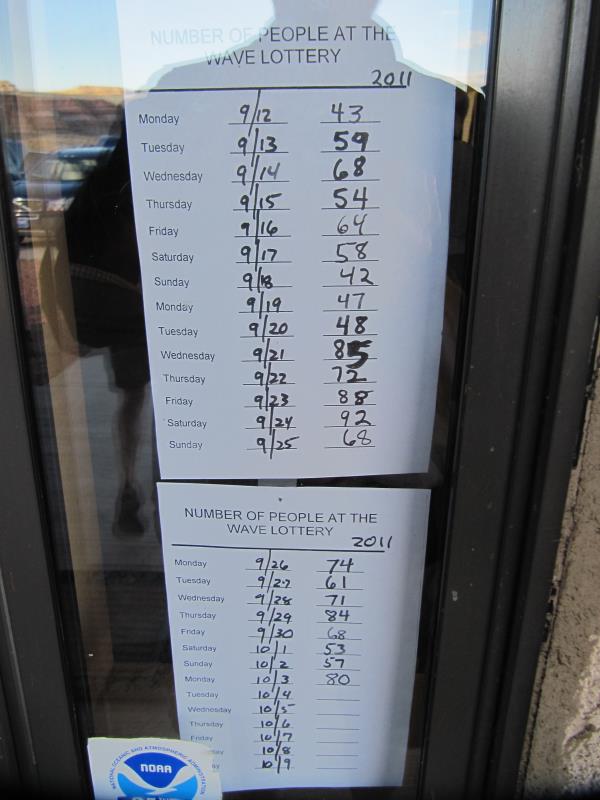 NUMBER OF PEOPLE AT THE
WAVE LOTTERY
2011
Monday 9/12 43
Tuesday 9/13 59
Wednesday 9/14 68
Thursday 9/15 54
Friday 9/16 64
Saturday 9/17 58
Sunday 9/18 42
Monday 9/19 47
Tuesday 9/20 48
Wednesday 9/21 85
Thursday 9/22 72
Friday 9/23 88
Saturday 9/24 92
Sunday 9/25 68
NUMBER OF PEOPLE AT THE
WAVE LOTTERY
2011
Monday 9/26 74
Tuesday 9/27 61
Wednesday 9/28 71
Thursday 9/29 84
Friday 9/30 68
Saturday 10/1 53
Sunday 10/2 57
Monday 10/3 80
Tuesday 10/4
Wednesday 10/5
Thursday 10/6
Friday 10/7
10/8
10/9
NATIONAL OCEANIC AND ATMOSPHERIC ADMINISTRATION
NOAA